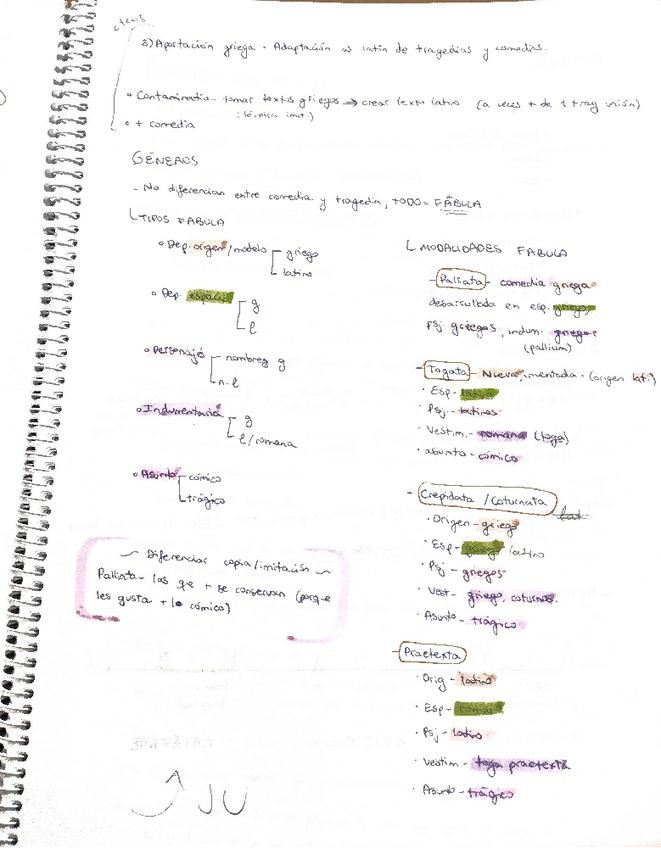 3) Aportación griega. Adaptación al latín de tragedias y comedias.
• Contaminatio - tomar textos griegos → crear texto latino (a veces + de 1 + ray unión)
• + comedia
GÉNEROS
- No diferencian entre comedia y tragedia, TODO = FÁBULA
TIPOS FABULA
• Dep. origen/modelo
griego
latino
• Dep. espacio
g
l
• Personaje
nombres g
n. l
• Indumentaria
g
l/romana
• Asunto
cómico
trágico
~ Diferenciar copia/imitación ~
Palliata - las que + se conservan (porque
les gusta + lo cómico)
MODALIDADES FABULA
- Palliata - comedia griega
desarrollada en esp. griego,
Psj griegos, indum. griega
(pallium)
- Togata - Nueva, inventada. (origen lat.)
· Esp - latino
· Psj - latinos
· Vestim. - romana (toga)
· asunto - cómico
- Crepidata / Coturnata
· Origen - griego
· Esp - griego latino
· Psj - griegos
· Vest - griego, coturnos.
· Asunto - trágico
- Praetexta
· Orig - latino
· Esp - romano
· Psj - latino
· Vestim - toga praetexta
· Asunto - trágico
JU